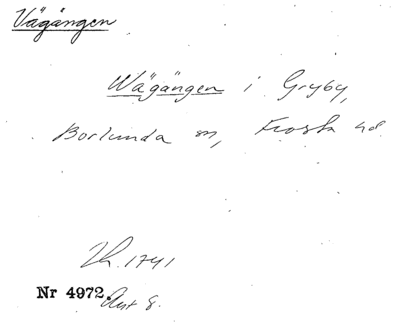 Vägången
Wägången i Gryby,
Borlunda sn, Frosta hd
Lh. 1741
Nr 4972. Akt 8.